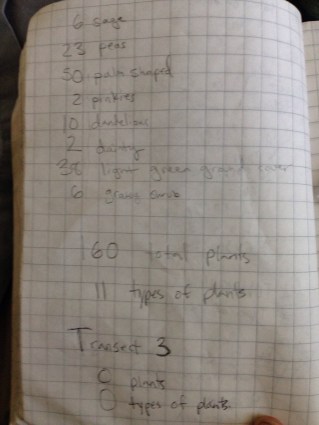 6 sage
23 peas
50 palm shaped
2 pinkies
10 dandelion
2 
38 light green ground cover
6 grass
160 total plants
11 types of plants
Transect 3
0 plants
0 types of plants